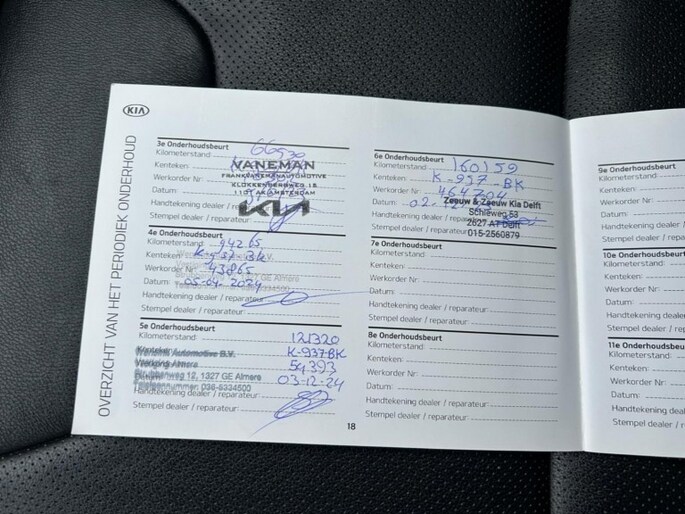 KIA
OVERZICHT VAN HET PERIODIEK ONDERHOUD
3e Onderhoudsbeurt
Kilometerstand
VANEMAN
Kenteken:
FRANK VANEMAN AUTOMOTIVE
Werkorder Nr:
KLOKKENBERGWEG 15
Datum:
1101 AK AMSTERDAM
Handtekening dealer / reparateur:
KIA
Stempel dealer / reparateur:
4e Onderhoudsbeurt
Kilometerstand 94265
Kenteken: K 937 BK
Werkorder Nr: 43865
1327 GE Almere
Datum: 05-04-2024
Handtekening dealer / reparateur:
Stempel dealer / reparateur:
5e Onderhoudsbeurt
Kilometerstand 121320
Kenteken: K-937BK
Automotive B.V.
54393
Almere
03-12-24
12, 1327 GE Almere
Telefoonnummer: 036-5334500
Handtekening dealer / reparateur:
Stempel dealer / reparateur:
18
6e Onderhoudsbeurt
Kilometerstand: 160159
Kenteken: K-937-BK
Werkorder Nr: 464704
Datum: 02
Zeeuw & Zeeuw Kia Delft
Handtekening dealer / reparateur
Schieweg 53
2627 AT Delft
Stempel dealer / reparateur: 015-2560879
7e Onderhoudsbeurt
Kilometerstand:
Kenteken:
Werkorder Nr:
Datum:
Handtekening dealer / reparateur:
Stempel dealer / reparateur:
8e Onderhoudsbeurt
Kilometerstand:
Kenteken:
Werkorder Nr:
Datum:
Handtekening dealer / reparateur:
Stempel dealer / reparateur:
9e Onderhoudsbeurt
Kilometerstand:
Kenteken:
Werkorder Nr:
Datum:
Handtekening dealer
Stempel dealer / rep
10e Onderhoudsbeurt
Kilometerstand:
Kenteken:
Werkorder Nr:
Datum:
Handtekening dealer
Stempel dealer / repa
11e Onderhoudsbeurt
Kilometerstand:
Kenteken:
Werkorder Nr:
Datum:
Handtekening dealer
Stempel dealer / repar